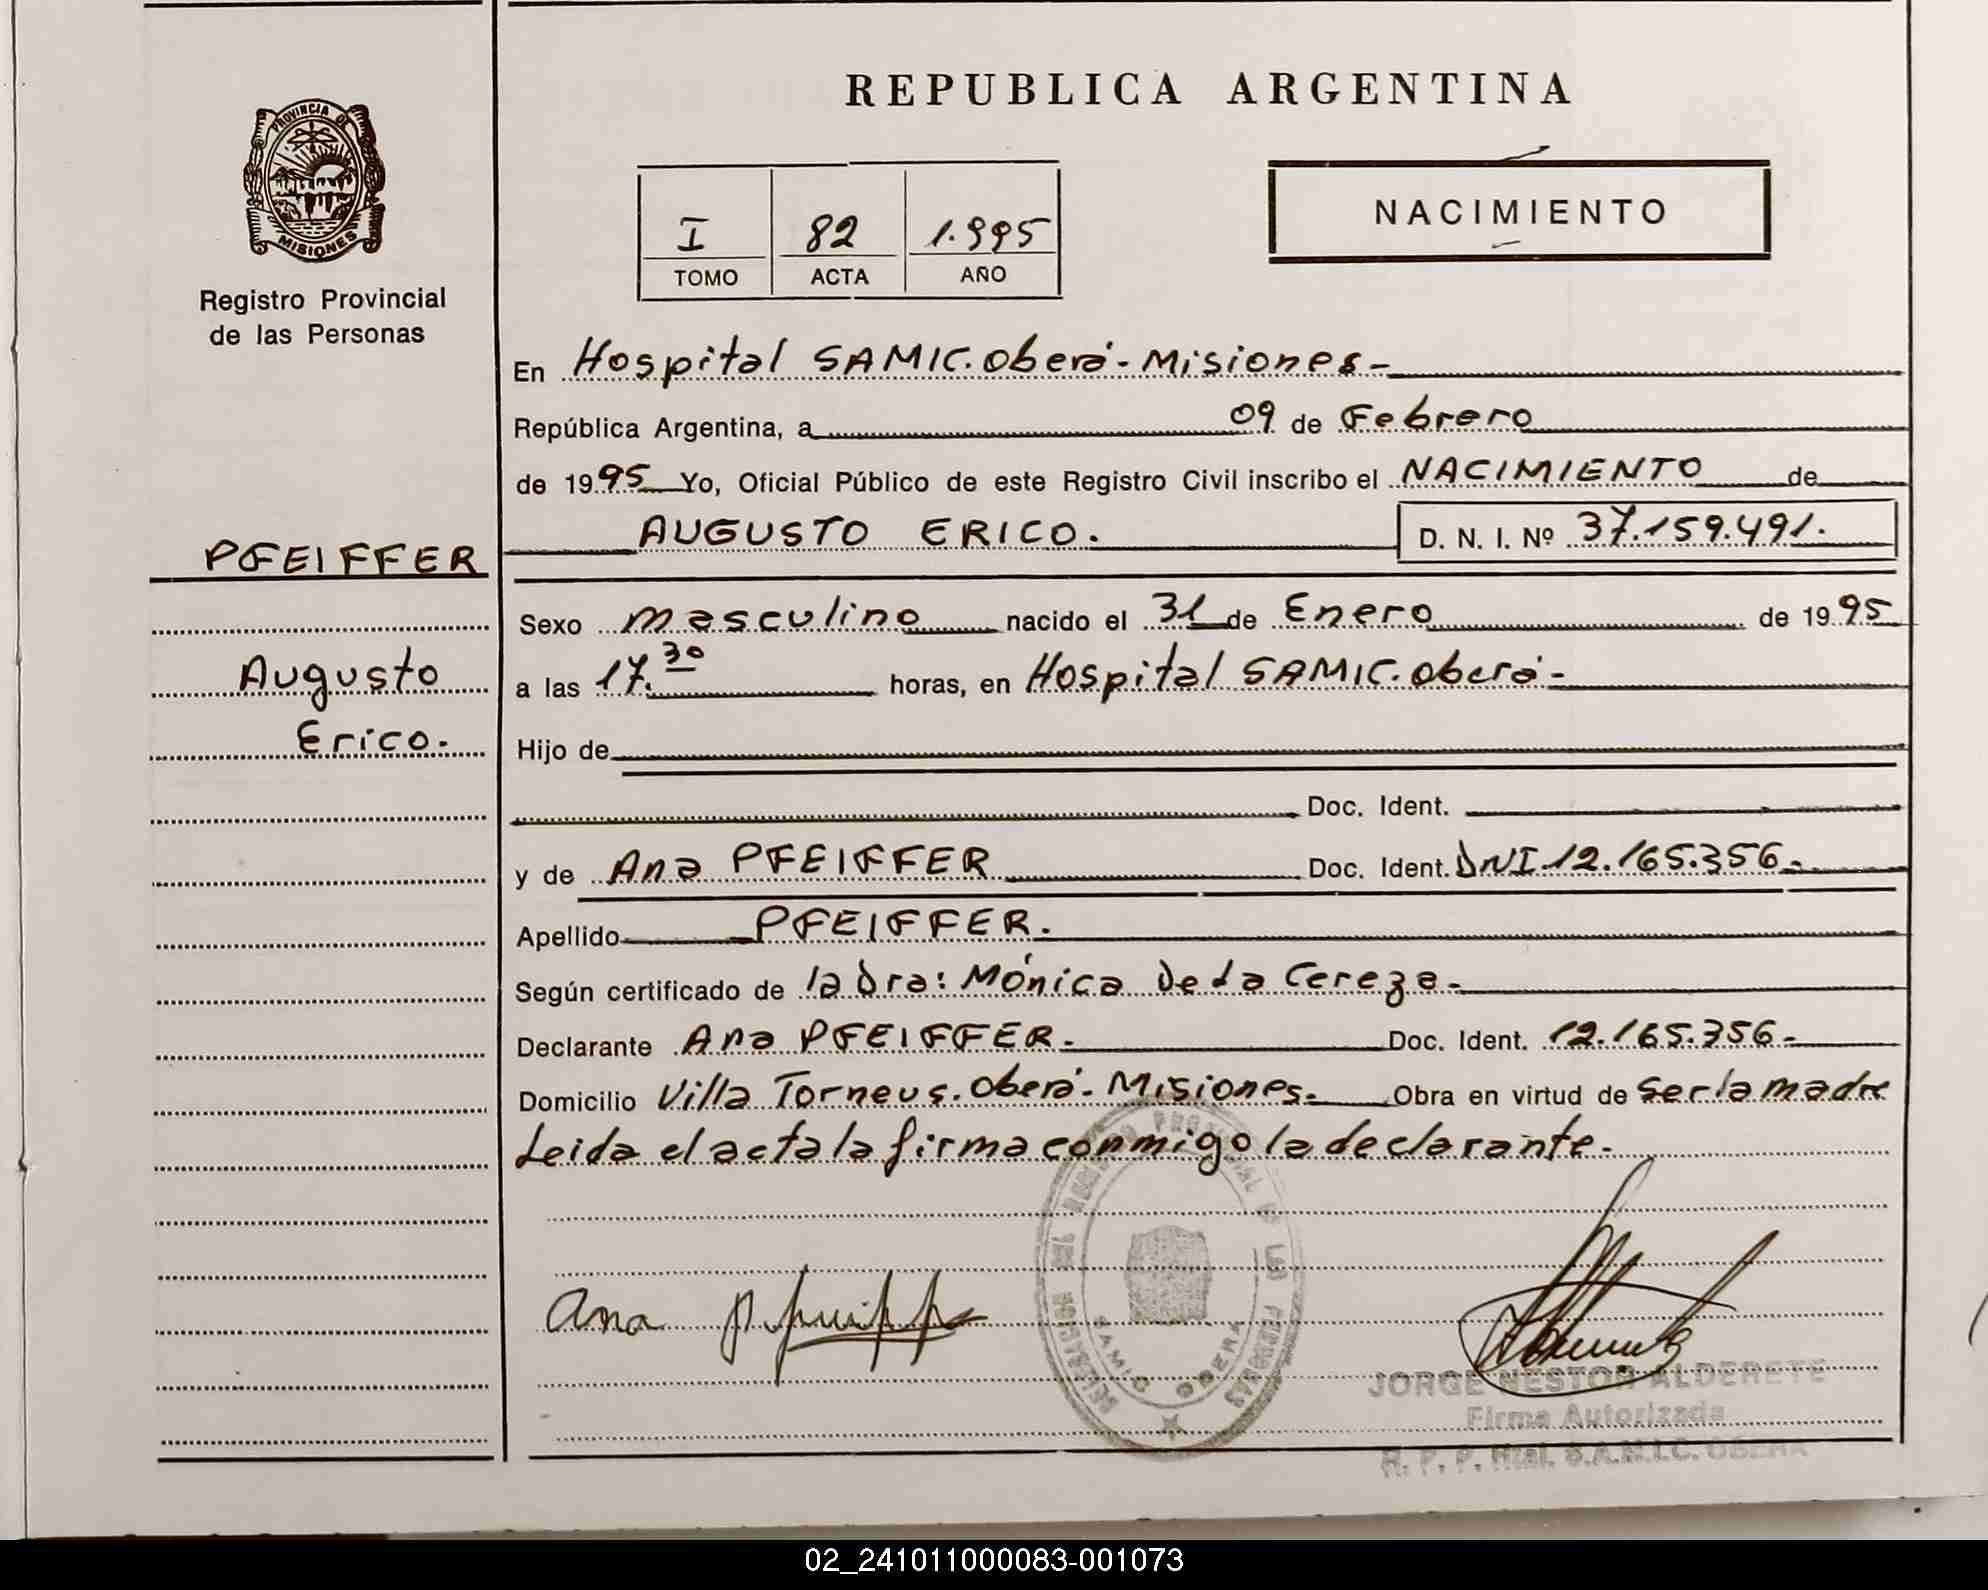 REPUBLICA ARGENTINA
PROVINCIA DE
MISIONES
NACIMIENTO
I 82 1.995
TOMO ACTA AÑO
Registro Provincial
de las Personas
En Hospital SAMIC. Oberá - Misiones -
República Argentina, a 09 de Febrero
de 1995 Yo, Oficial Público de este Registro Civil inscribo el NACIMIENTO de
AUGUSTO ERICO. D. N. I. Nº 37.159.491.
PFEIFFER
Augusto
Erico.
Sexo masculino nacido el 31 de Enero de 1995
a las 17.30 horas, en Hospital SAMIC. Oberá -
Hijo de
Doc. Ident.
y de Ana PFEIFFER Doc. Ident. DNI 12.165.356 -
Apellido PFEIFFER.
Según certificado de la Dra: Mónica De La Cereza -
Declarante Ana PFEIFFER. Doc. Ident. 12.165.356 -
Domicilio Villa Torneus. Oberá - Misiones. Obra en virtud de ser la madre
Leida el acta la firma conmigo la declarante.
Ana
SAMIC OBERA
JORGE NESTOR ALDERETE
Firma Autorizada
R. P. P. Hzal. S.A.M.I.C. OBERA
02_241011000083-001073